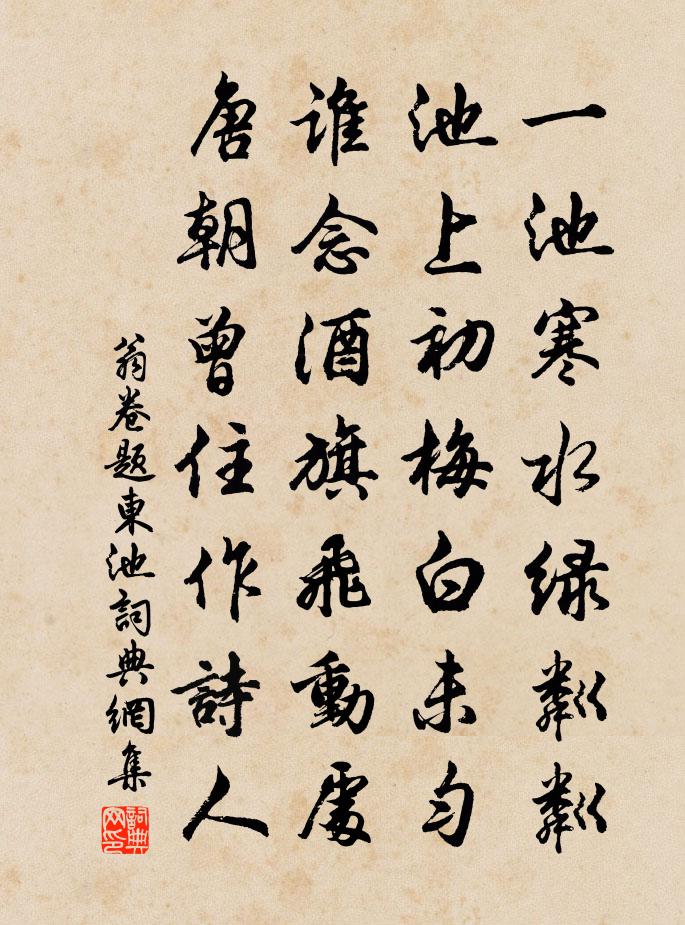 一池寒水绿粼粼
池上初梅白未匀
谁念酒旗飛動處
唐朝曾住作詩人
翁卷题東池詞典網集
詞典网印